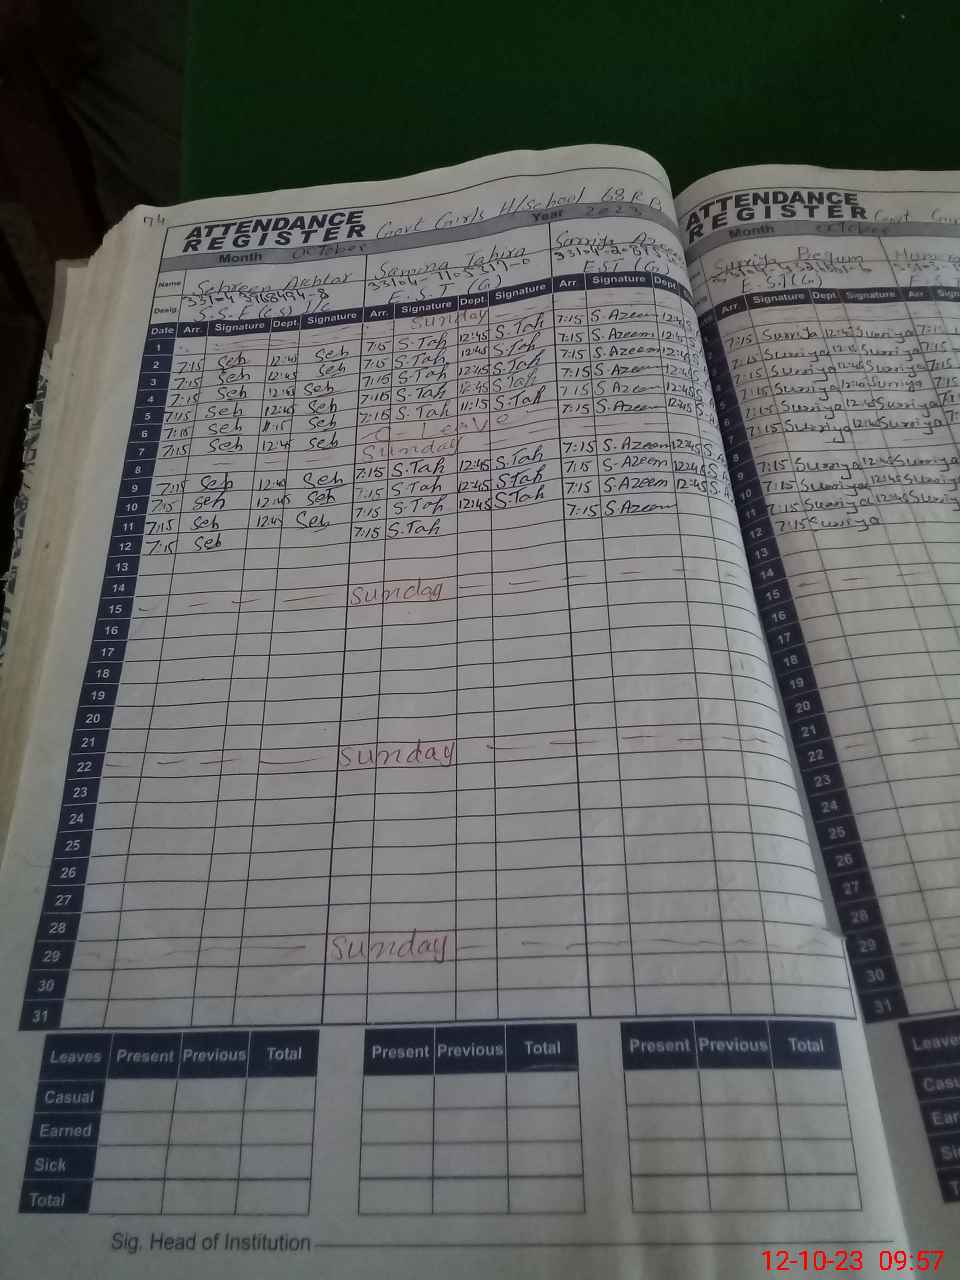 74
ATTENDANCE REGISTER Govt Girls H/School 68 R B
Month October Year 2023
Name Sehreen Akhtar Samina Tahira
Desig. S.S.E (CS) 16 E.S.T (G) E.ST (G)
Date Arr. Signature Dept. Signature Arr. Signature Dept. Signature Arr. Signature Dept.
1 Sunday
2 7:15 Seh 12:45 Seh 7:15 S.Tah 12:45 S.Tah 7:15 S.Azeem 12:45
3 7:15 Seh 12:45 Seh 7:15 S.Tah 12:45 S.Tah 7:15 S.Azeem 12:45
4 7:15 Seh 12:45 Seh 7:15 S.Tah 12:45 S.Tah 7:15 S.Azeem 12:45
5 7:15 Seh 12:45 Seh 7:15 S.Tah 12:45 S.Tah 7:15 S.Azeem 12:45
6 7:15 Seh 11:15 Seh 7:15 S.Tah 11:15 S.Tah 7:15 S.Azeem
7 7:15 Seh 12:45 Seh C-Leave 7:15 S.Azeem 12:45
8 Sunday
9 7:15 Seh 12:45 Seh 7:15 S.Tah 12:45 S.Tah 7:15 S.Azeem 12:45
10 7:15 Seh 12:45 Seh 7:15 S.Tah 12:45 S.Tah 7:15 S.Azeem 12:45
11 7:15 Seh 12:45 Seh 7:15 S.Tah 12:45 S.Tah 7:15 S.Azeem 12:45
12 7:15 Seh 7:15 S.Tah 7:15 S.Azeem
13
14
15 Sunday
16
17
18
19
20
21
22 Sunday
23
24
25
26
27
28
29 Sunday
30
31
Leaves Present Previous Total Present Previous Total Present Previous Total
Casual
Earned
Sick
Total
Sig. Head of Institution
ATTENDANCE REGISTER Govt
Month October
Surriya Begum
E.S.T (G)
Arr. Signature Dept. Signature Arr. Signature
7:15 Surriya 12:45 Surriya 7:15
7:15 Surriya 12:45 Surriya 7:15
7:15 Surriya 12:45 Surriya 7:15
7:15 Surriya 12:45 Surriya 7:15
7:15 Surriya 12:45 Surriya
8
9 7:15 Surriya 12:45 Surriya
10 7:15 Surriya 12:45 Surriya
11 7:15 Surriya 12:45 Surriya
12 7:15 Surriya
13
14
15
16
17
18
19
20
21
22
23
24
25
26
27
28
29
30
31
12-10-23 09:57